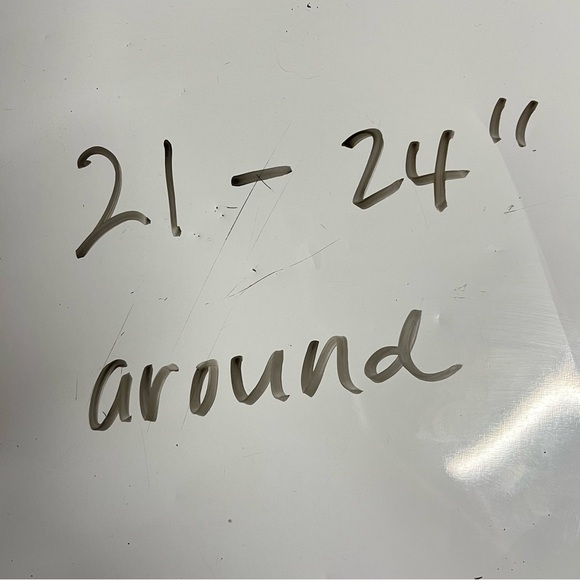 21 - 24"
around